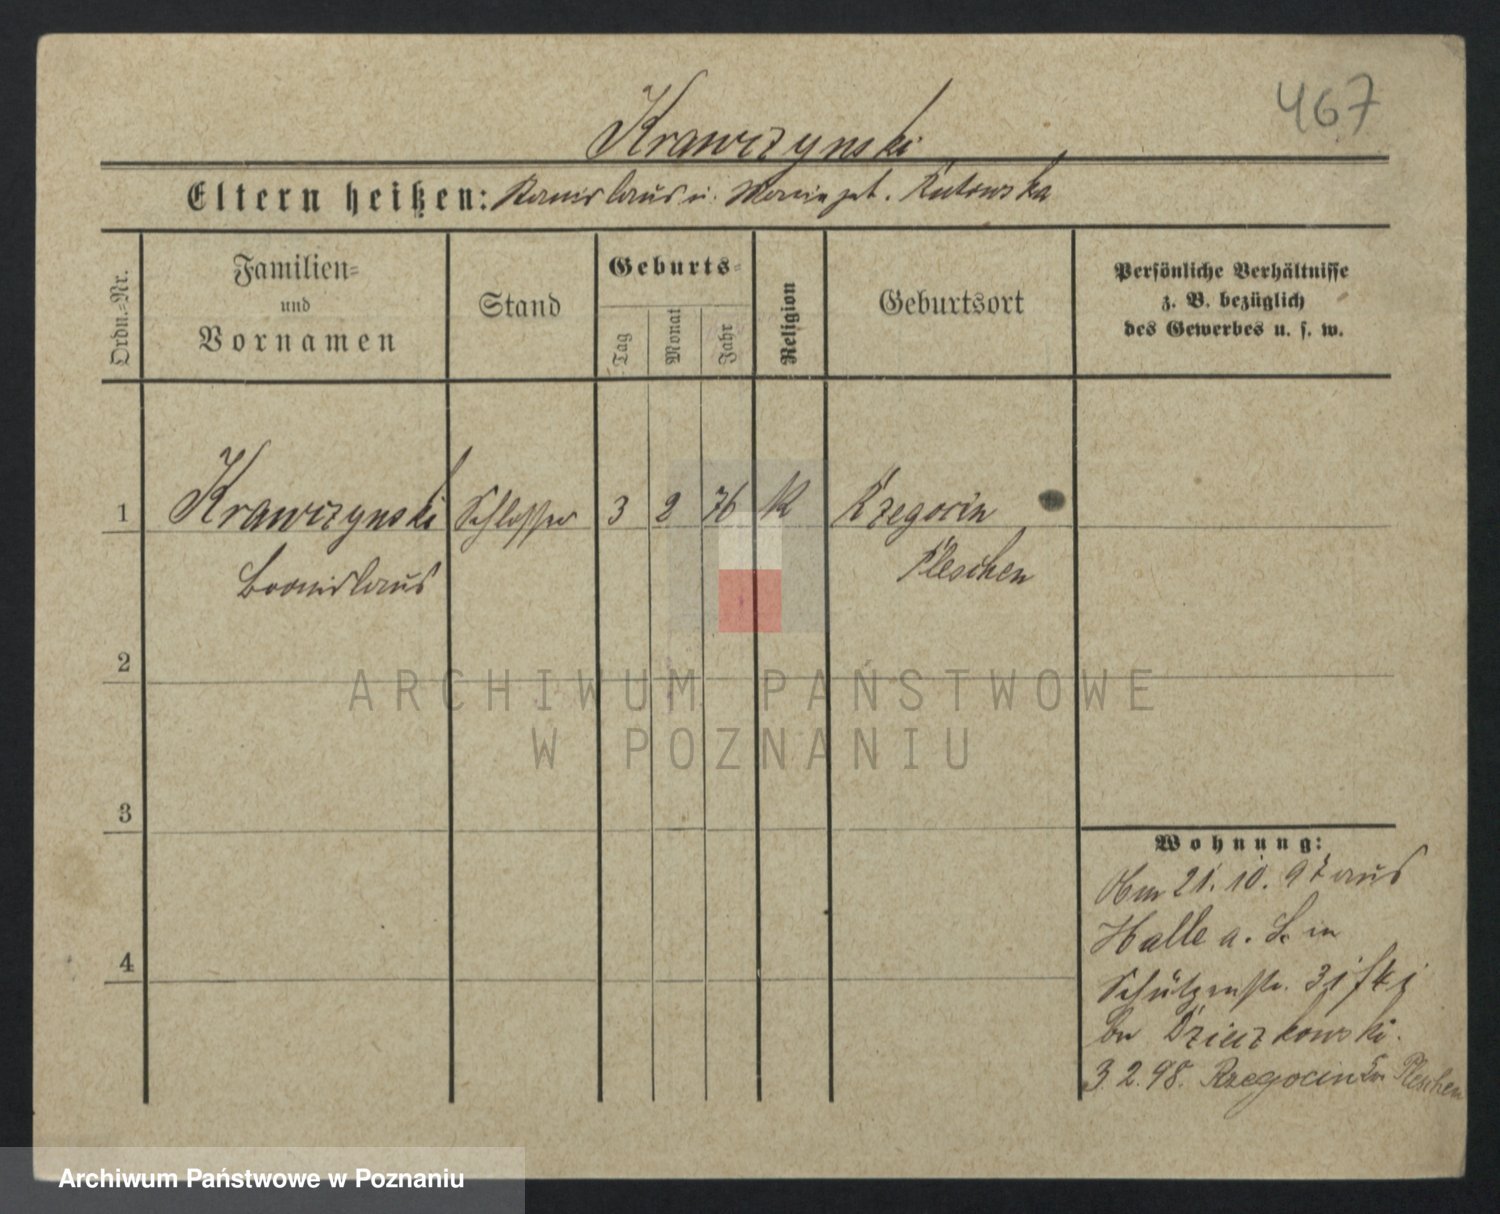 467
Krawczynski
Eltern heißen: Stanislaus u. Maria geb. Rutowska
Ordn.-Nr.
Familien-
und
Vornamen
Stand
Geburts-
Tag
Monat
Jahr
Religion
Geburtsort
Persönliche Verhältnisse
z. B. bezüglich
des Gewerbes u. s. w.
1
Krawczynski
Schlosser
3
2
76
K
Rzegocin
Bronislaus
Pleschen
2
ARCHIWUM PAŃSTWOWE
W POZNANIU
3
Wohnung:
Am 21. 10. 97 aus
Halle a. S. in
Schützenstr. 31
bei Dzieczkowski.
3. 2. 98. Rzegocin Kr. Pleschen
4
Archiwum Państwowe w Poznaniu